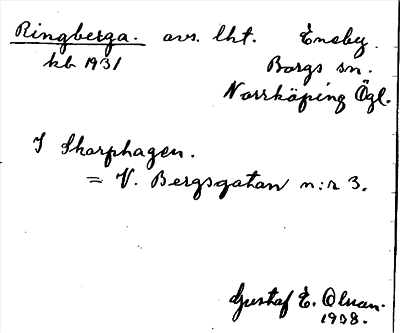 Ringberga. avs. lht. Eneby
kb 1931 Borgs sn.
Norrköping Ögl.
I Skarphagen.
= V. Bergsgatan n:r 3.
Gustaf E. Olsson.
1938.